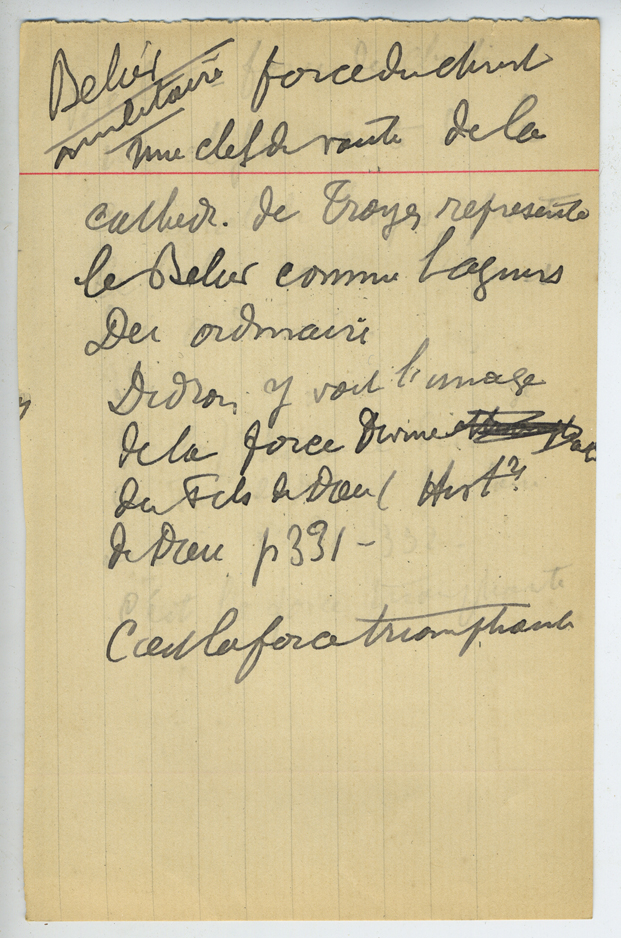 Belier
militaire force du christ
une clef de voute de la
cathedr. de Troyes represente
le Belier comme l'agnus
Dei ordinaire
Didron y voit l'image
de la force Divine
du Fils de Dieu ( Hist
de Dieu p 331 -
C'est la force triomphante